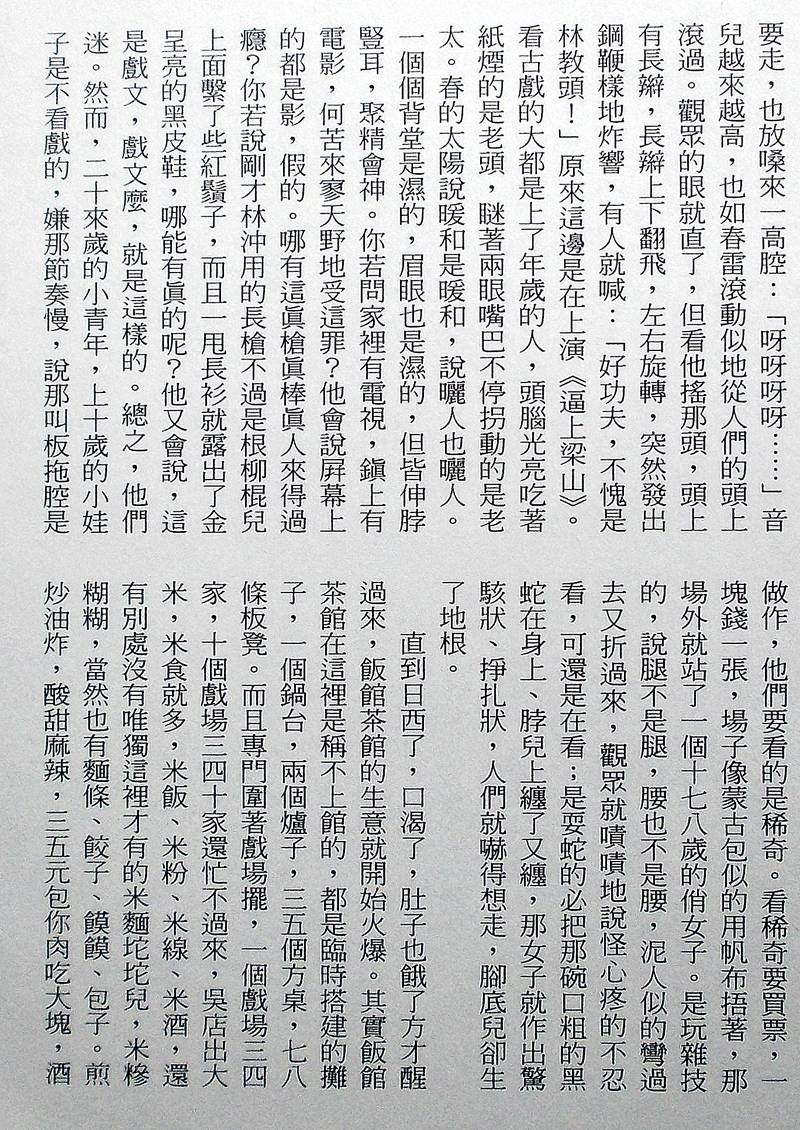 要走，也放嗓來一高腔：「呀呀呀呀……」音
兒越來越高，也如春雷滾動似地從人們的頭上
滾過。觀眾的眼就直了，但看他搖那頭，頭上
有長辮，長辮上下翻飛，左右旋轉，突然發出
鋼鞭樣地炸響，有人就喊：「好功夫，不愧是
林教頭！」原來這邊是在上演《逼上梁山》。
看古戲的大都是上了年歲的人，頭腦光亮吃著
紙煙的是老頭，瞇著兩眼嘴巴不停拐動的是老
太。春的太陽說暖和是暖和，說曬人也曬人。
一個個背堂是濕的，眉眼也是濕的，但皆伸脖
豎耳，聚精會神。你若問家裡有電視，鎮上有
電影，何苦來寥天野地受這罪？他會說屛幕上
的都是影，假的。哪有這眞槍眞棒眞人來得過
癮？你若說剛才林沖用的長槍不過是根柳棍兒
上面繫了些紅鬚子，而且一甩長衫就露出了金
呈亮的黑皮鞋，哪能有眞的呢？他又會說，這
是戲文，戲文麼，就是這樣的。總之，他們
迷。然而，二十來歲的小青年，上十歲的小娃
子是不看戲的，嫌那節奏慢，說那叫板拖腔是
做作，他們要看的是稀奇。看稀奇要買票，一
塊錢一張，場子像蒙古包似的用帆布捂著，那
場外就站了一個十七八歲的俏女子。是玩雜技
的，說腿不是腿，腰也不是腰，泥人似的彎過
去又折過來，觀眾就嘖嘖地說怪心疼的不忍
看，可還是在看；是耍蛇的必把那碗口粗的黑
蛇在身上、脖兒上纏了又纏，那女子就作出驚
駭狀、掙扎狀，人們就嚇得想走，腳底兒卻生
了地根。
直到日西了，口渴了，肚子也餓了方才醒
過來，飯館茶館的生意就開始火爆。其實飯館
茶館在這裡是稱不上館的，都是臨時搭建的攤
子，一個鍋台，兩個爐子，三五個方桌，七八
條板凳。而且專門圍著戲場擺，一個戲場三四
家，十個戲場三四十家還忙不過來，吳店出大
米，米食就多，米飯、米粉、米線、米酒，還
有別處沒有唯獨這裡才有的米麵坨坨兒，米糝
糊糊，當然也有麵條、餃子、饃饃、包子。煎
炒油炸，酸甜麻辣，三五元包你肉吃大塊，酒